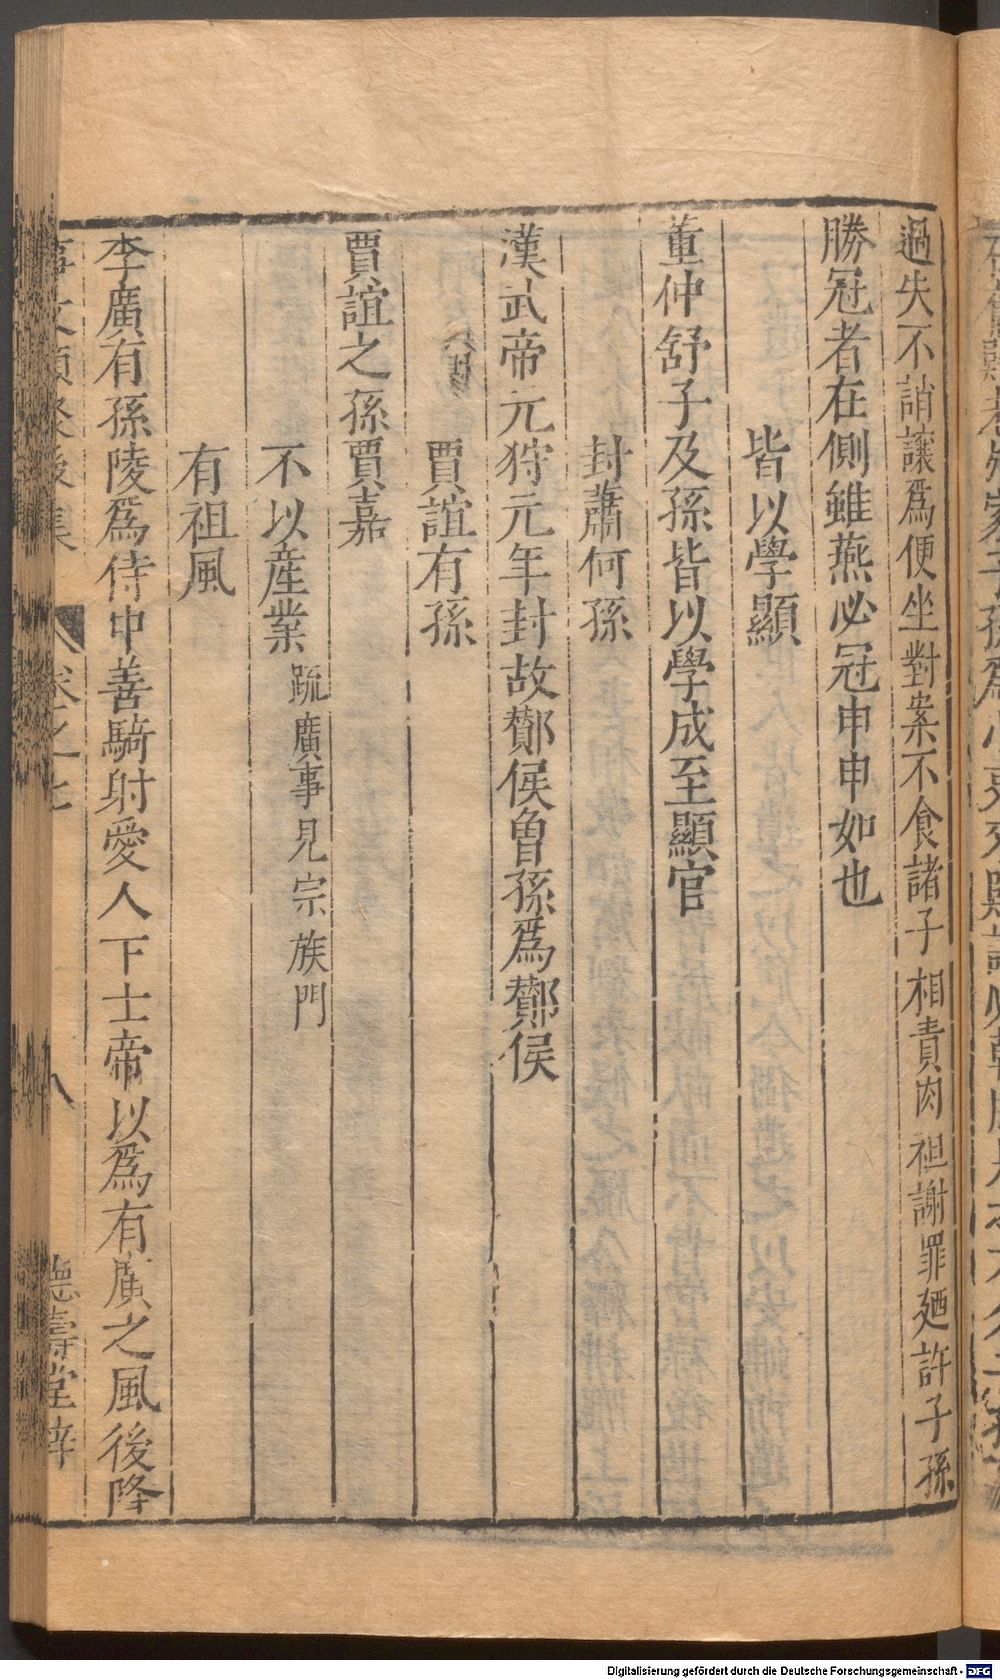 過失不誚讓爲便坐對案不食諸子相責肉袒謝罪廼許子孫
勝冠者在側雖燕必冠申申如也
皆以學顯
董仲舒子及孫皆以學成至顯官
封蕭何孫
漢武帝元狩元年封故酇侯曾孫爲酇侯
賈誼有孫
賈誼之孫賈嘉
不以産業 疏廣事見宗族門
有祖風
李廣有孫陵爲侍中善騎射愛人下士帝以爲有廣之風後降
事文類聚後集 卷之七 八 德壽堂梓
Digitalisierung gefördert durch die Deutsche Forschungsgemeinschaft - DFG